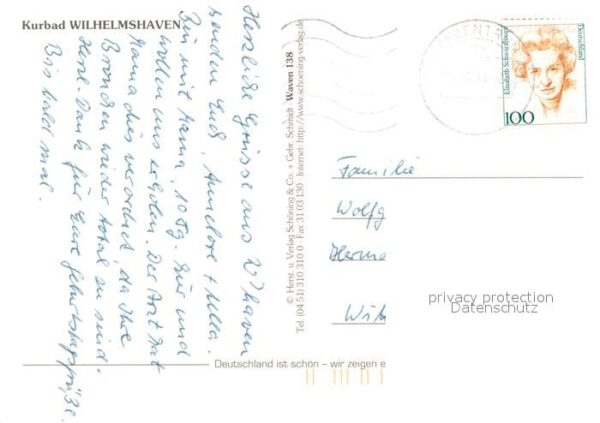 Kurbad WILHELMSHAVEN
Herzliche Grüsse aus W'haven
senden Euch, Annelore + Ulla.
Bin mit Mama 10 Tg. hier und
wollen uns erholen. Der Arzt hat
Mama dies verordnet, da Ihre
Bronchien wieder total zu sind.
Herzl. Dank für Eure Geburtstagsgrüße.
Bis bald mal.
© Herst. u. Verlag Schöning & Co. + Gebr. Schmidt · Waven 138
Tel. (04 51) 310 310 0 · Fax 31 03 130 · Internet: http://www.schoening-verlag.de
Elisabeth Schwarzhaupt
Deutschland
100
Familie
Wolfg
Herma
Wilh
privacy protection
Datenschutz
Deutschland ist schön – wir zeigen e